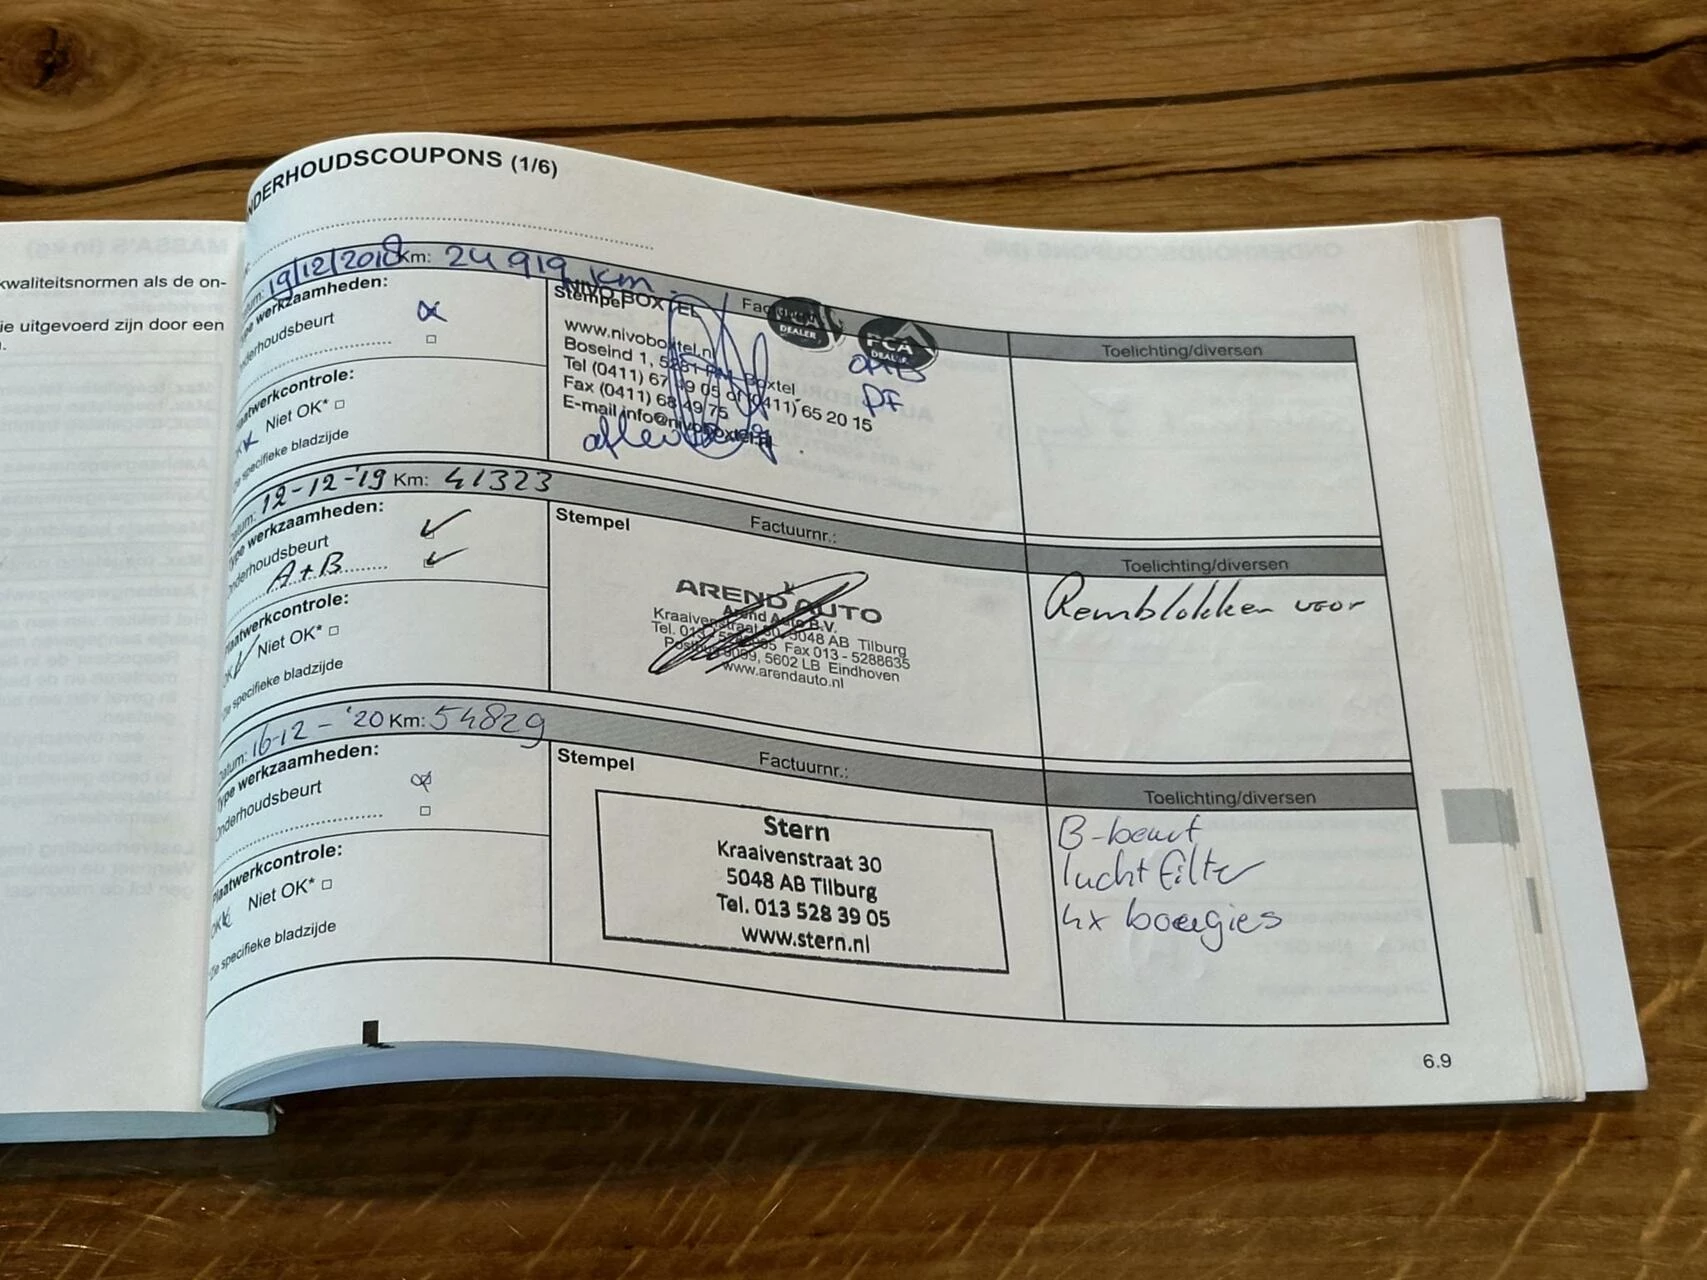 kwaliteitsnormen als de on-
ie uitgevoerd zijn door een
NDERHOUDSCOUPONS (1/6)
Datum: 19/12/2018 Km: 24 919 km.
Type werkzaamheden:
Onderhoudsbeurt
Plaatwerkcontrole:
OK Niet OK*
Zie specifieke bladzijde
Stempel
NIVO BOXTEL
www.nivoboxtel.nl
Boseind 1, 5281 RM Boxtel
Tel (0411) 67 49 05 of (0411) 65 20 15
Fax (0411) 68 49 75
E-mail info@nivoboxtel.nl
aflevering
DEALER
FCA
DEALER
PF
Toelichting/diversen
Datum: 12-12-'19 Km: 41323
Type werkzaamheden:
Onderhoudsbeurt
A+B
Plaatwerkcontrole:
OK Niet OK*
Zie specifieke bladzijde
Stempel Factuurnr.:
AREND AUTO
Arend Auto B.V.
Kraaivenstraat 30, 5048 AB Tilburg
Tel. 013 - Fax 013 - 5288635
5602 LB Eindhoven
www.arendauto.nl
Toelichting/diversen
Remblokken voor
Datum: 16-12-'20 Km: 54829
Type werkzaamheden:
Onderhoudsbeurt
Plaatwerkcontrole:
OK Niet OK*
Zie specifieke bladzijde
Stempel Factuurnr.:
Stern
Kraaivenstraat 30
5048 AB Tilburg
Tel. 013 528 39 05
www.stern.nl
Toelichting/diversen
B-beurt
luchtfilter
4x bougies
6.9